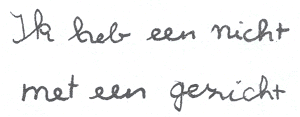 Ik heb een nicht
met een gezicht